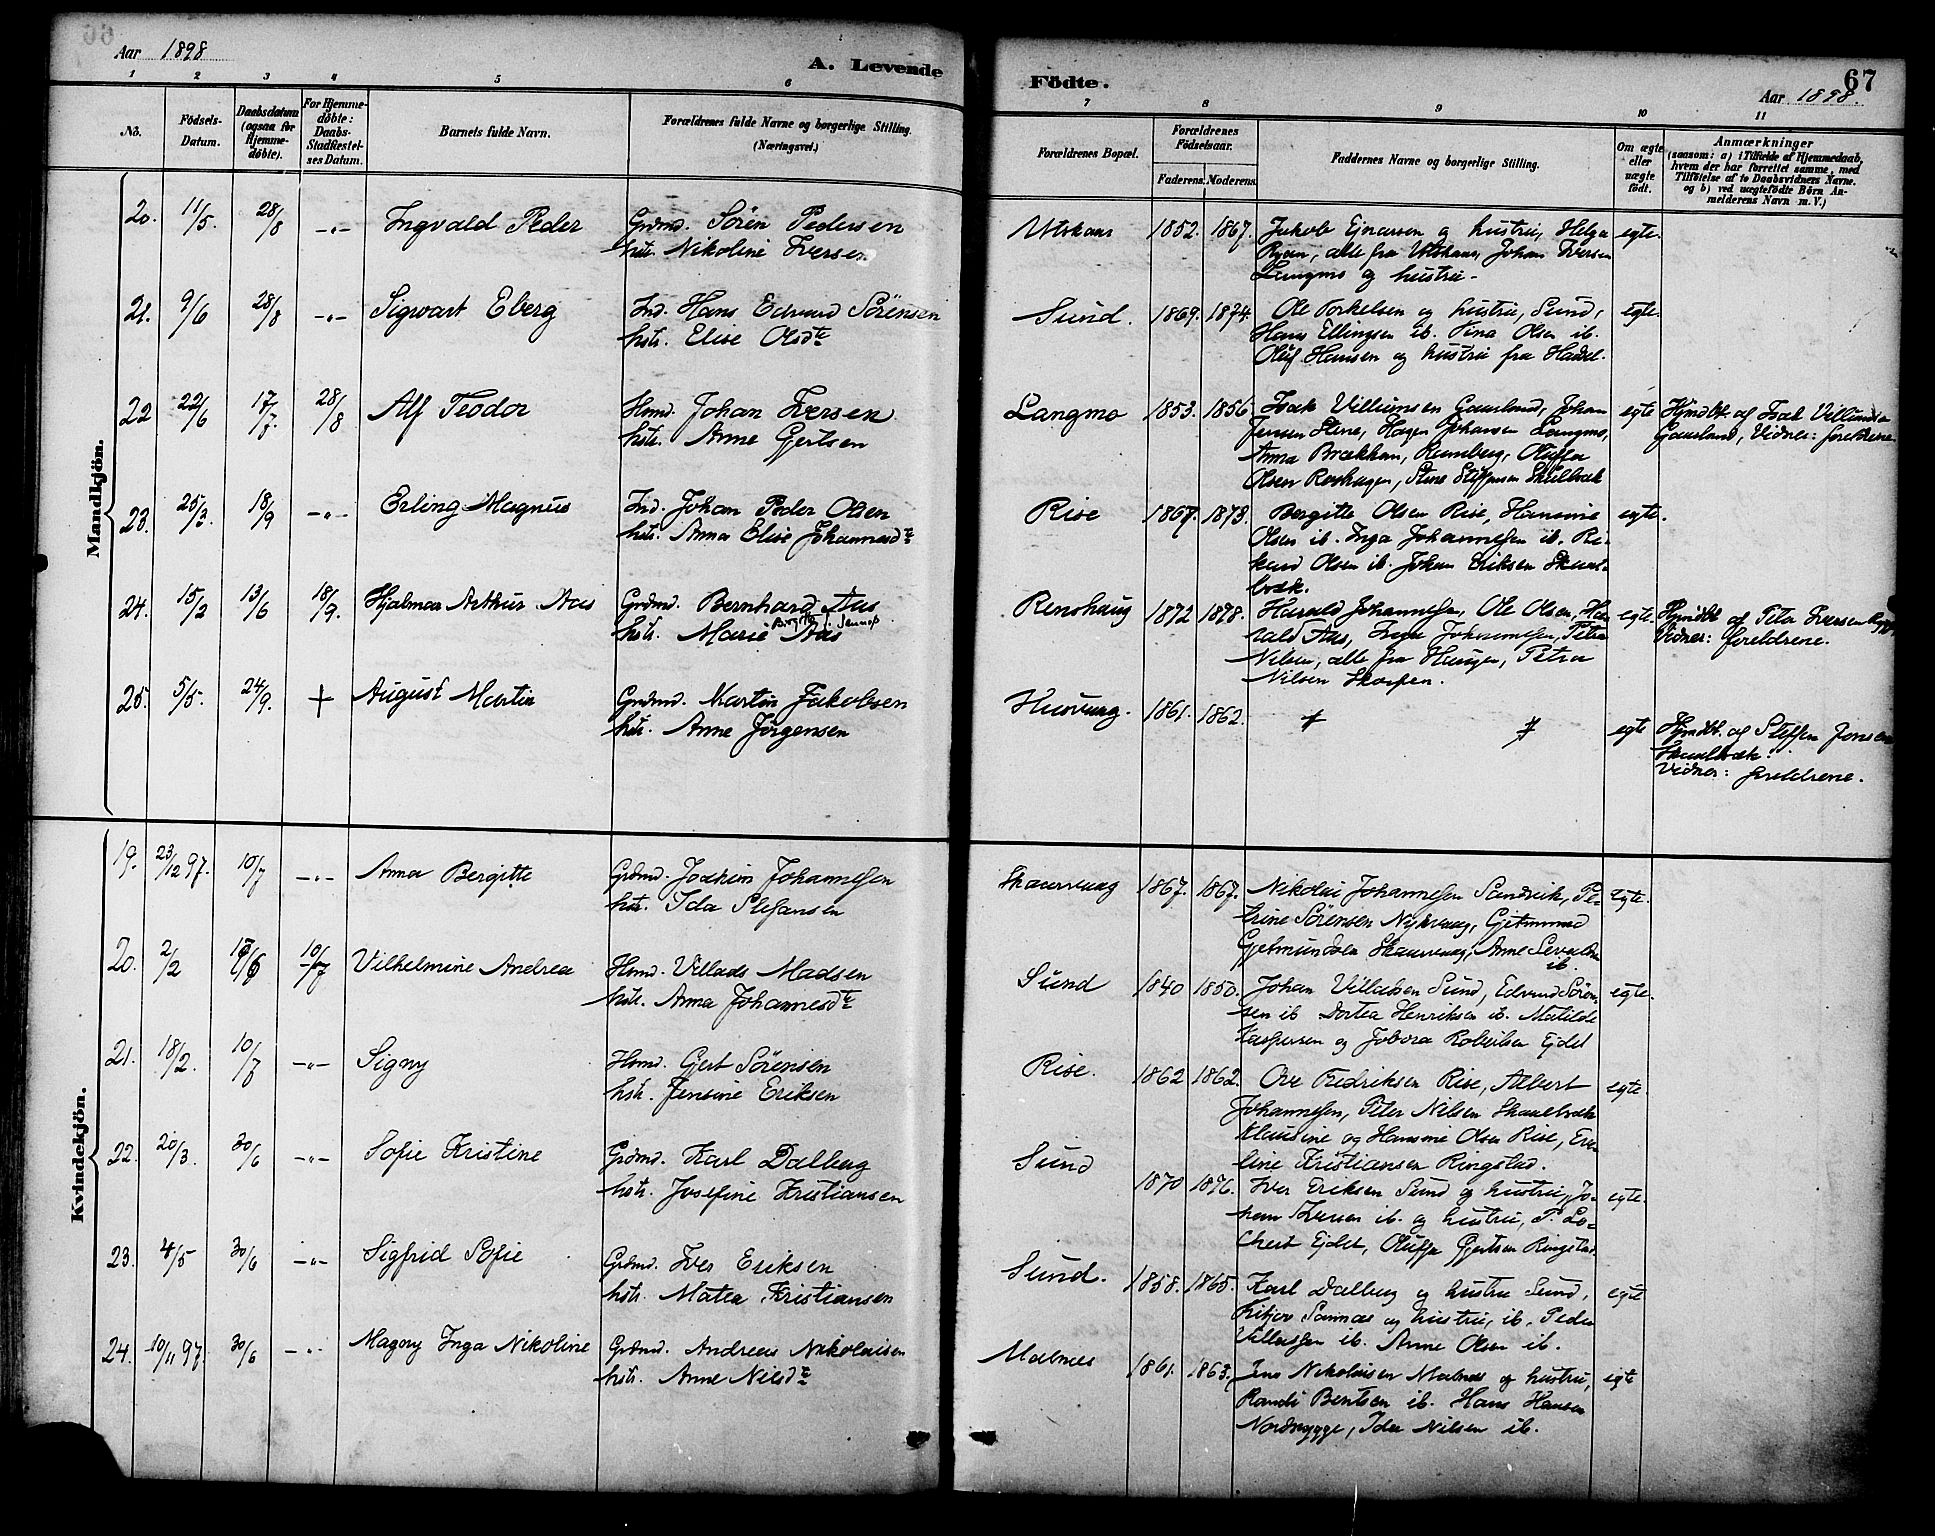 Aar 1898
A. Levende
Födte.
67
Aar 1898.
1 2 3 4 5 6 7 8 9 10 11
No.
Födsels-Datum.
Daabsdatum (ogsaa for Hjemmedöbte).
For Hjemmedöbte: Daabs-Stadfæstelses Datum.
Barnets fulde Navn.
Forældrenes fulde Navne og borgerlige Stilling. (Næringsvei.)
Forældrenes Bopæl.
Forældrenes Födselsaar.
Faderens. Moderens.
Faddernes Navne og borgerlige Stilling.
Om ægte eller uægte födt.
Anmærkninger
(saasom: a) i Tilfælde af Hjemmedaab, hvem der har forrettet samme, med Tilföielse af to Daabsvidners Navne. og b) ved uægtefödte Börn Anmelderens Navn m. V.)
Mandkjön.
20. 11/5. 28/8 -"- Ingvald Peder Grdmd. Sören Pedersen 1852. 1867. Jakob Ejnarsen og hustru, Helga egte.
hst. Nikoline Iversen alle fra Johan Iversen
Langmo og hustru.
21. 9/6 28/8 -"- Sigvart Eberg Ind. Hans Edvard Sörensen Sund. 1869. 1874. Ole Torkelsen og hustru, Sund, egte.
hstr. Elise Olsdtr Hans Ellingsen ib. Tina Olsen ib.
Oluf Hansen og hustru fra Hadsel.
22 22/6 17/7. 28/8 Alf Teodor Hmd. Johan Iversen Langmo 1853. 1856. Isak Villumsen Gaustand, Johan egte Hjmdbt. af Isak Villumsen
hstr. Anne Gjertsen Jensen Stene, Hagen Johansen Langmo, Vidner: foreldrene
Anna Brækkan, Oluffa
Olsen
23. 25/3. 18/9 -"- Erling Magnus Ind. Johan Peder Olsen Rise 1867. 1873. Bergitte Olsen Rise, Hansine egte.
hstr. Anna Elise Johannesdtr Olsen ib. Inga Johannessen ib. Rikard Olsen ib. Johan Eriksen
24. 15/2 13/6 18/9. Hjalmar Arthur Aas Grdmd. Bernhard Aas Renshaug 1872 1878. Harald Johannessen, Ole Olsen, Harald Aas, egte. Hjmdbt af Peter Iversen
hstr. Marie Aas Johannessen, Petra Vidner: foreldrene.
Nilsen, alle fra Haugen, Petra
Nilsen Skarpen.
25. 5/5. 24/9. + August Martin Grdmd. Martin Jakobsen 1861. 1862. egte Hjmdbt. af Steffen Jensen
hstr. Anne Jörgensen
Vidner: foreldrene.
Kvindekjön.
19. 23/12 97. 10/7 -"- Anna Bergitte Grdmd. Joakim Johannessen Skaarvaag 1867. 1867. Nikolai Johannessen Sandvik, Petrine Sörensen Nykvaag, egte.
hstr. Ida Stefansen Skaarvaag, Anne
ib.
20. 2/2 10/7 Vilhelmine Andrea Hmd. Villads Madsen Sund 1840 1850. Johan Villadsen Sund, Edvard Sörensen ib egte.
hstr. Anna Johannesdtr Dortea Henriksen ib. Matilde
Kaspersen og Robertsen Ejdet
21. 18/2. 10/7 -"- Signy Hmd. Gert Sörensen Rise. 1862 1862. Ove Fredriksen Rise, Albert egte.
hstr. Jensine Eriksen Johannessen, Peter Nilsen
Klausine og Hansine Olsen Rise,
Kristiansen Ringstad.
22. 20/3. 30/6 -"- Sofie Kristine Grdmd. Karl Dalberg Sund 1870 1876. Iver Eriksen Sund og hustru, Johan Iversen ib. og hustru, egte.
hstr. Josefine Kristiansen P. Lochert Ejdet, Oluffa Gjertsen Ringstad.
23. 4/5 30/6 -"- Sigfrid Sofie Grdmd. Iver Eriksen Sund. 1858. 1865. Karl Dalberg og hustru Sund, egte
hstr. Matea Kristiansen og hustru, ib. Peder
Villassen ib. Anne Olsen ib.
24. 10/11 97. 30/6 -"- Magny Inga Nikoline Grdmd. Andreas Nikolaisen Malnes 1861. 1863. Jens Nikolaisen Malnes og hustru, egte
hstr. Anne Nilsdtr Randi Bentsen ib. Hans Hansen
Nordnygge, Ida Nilsen ib.